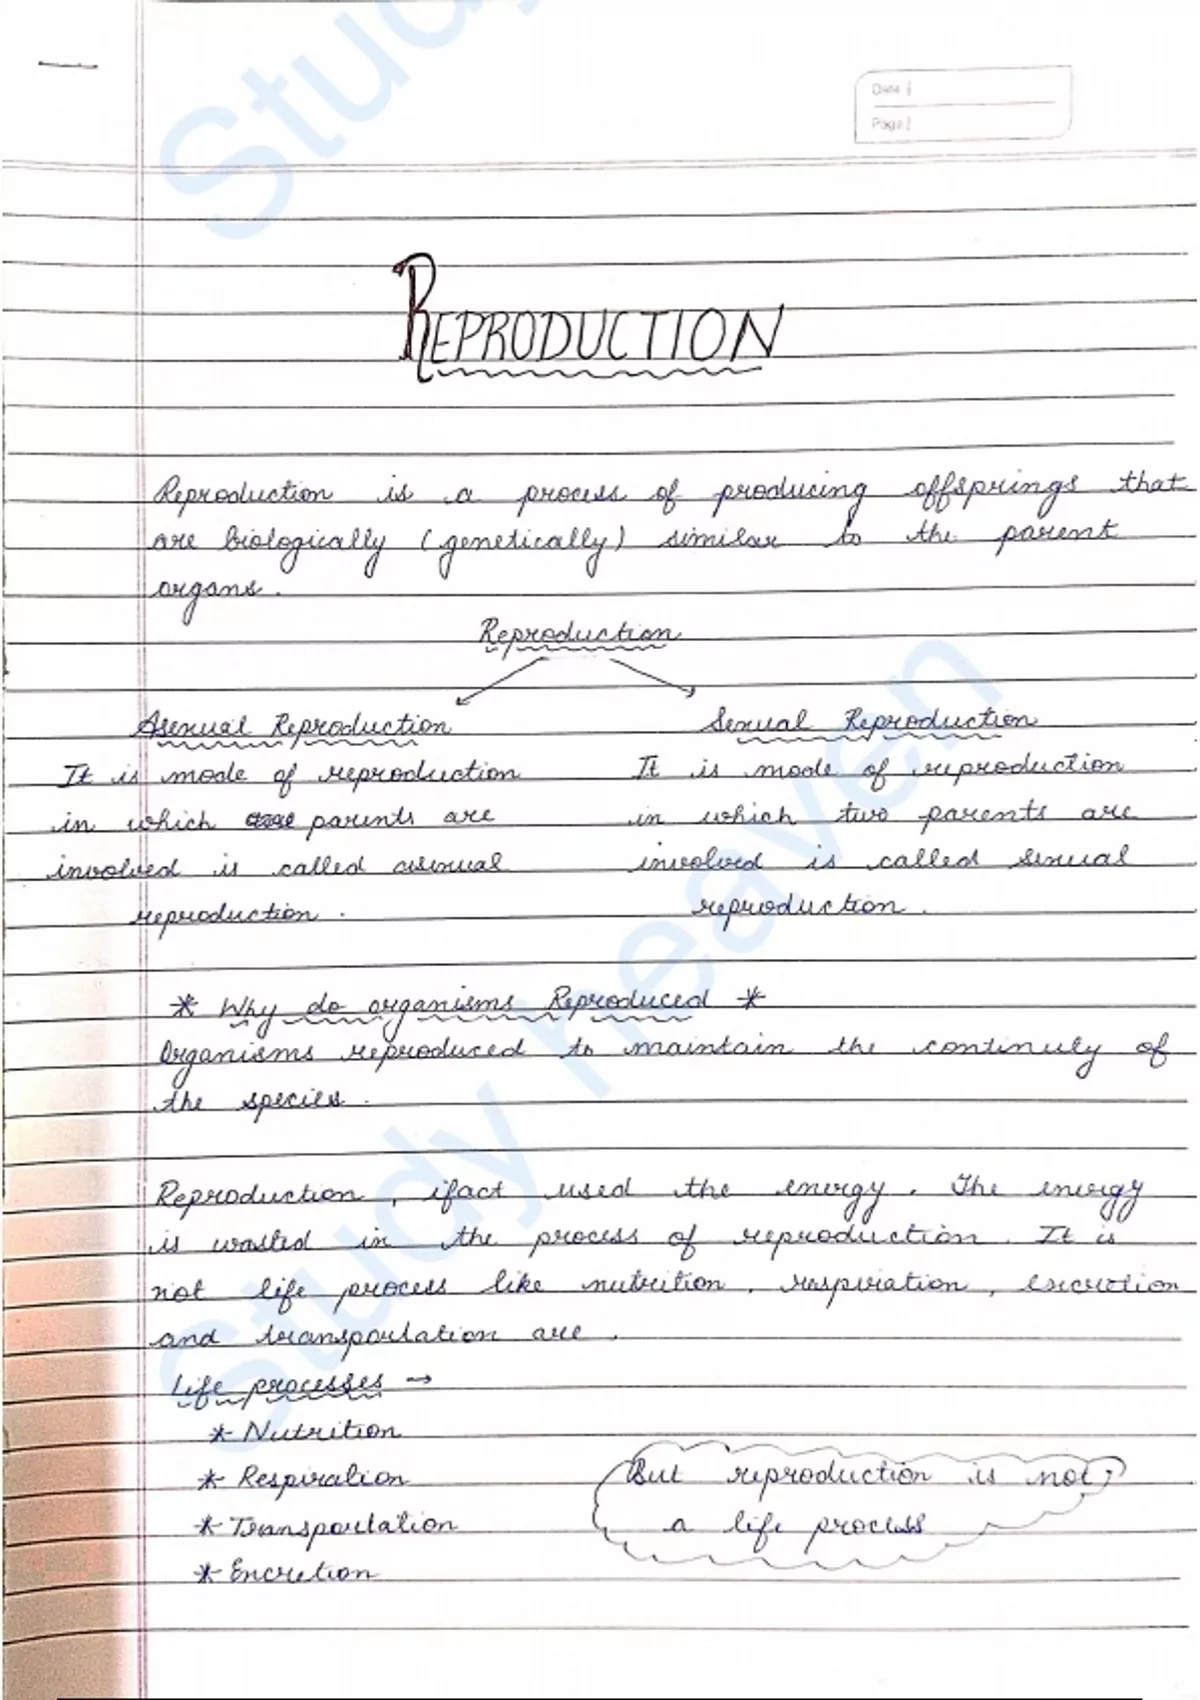 Study
Date :
Page :
REPRODUCTION
Reproduction is a process of producing offsprings that
are biologically (genetically) similar to the parent
organs.
Reproduction
Asexual Reproduction
It is mode of reproduction
in which parents are
involved is called asexual
reproduction.
Sexual Reproduction
It is mode of reproduction
in which two parents are
involved is called sexual
reproduction.
* Why do organisms Reproduced *
Organisms reproduced to maintain the continuly of
the species.
Reproduction, ifact used the energy. The energy
is wasted in the process of reproduction. It is
not life process like nutrition, respiration, excretion
and transportation are.
Life processes →
* Nutrition
* Respiration
* Transportation
* Excretion
But reproduction is not
a life process
Study heaven